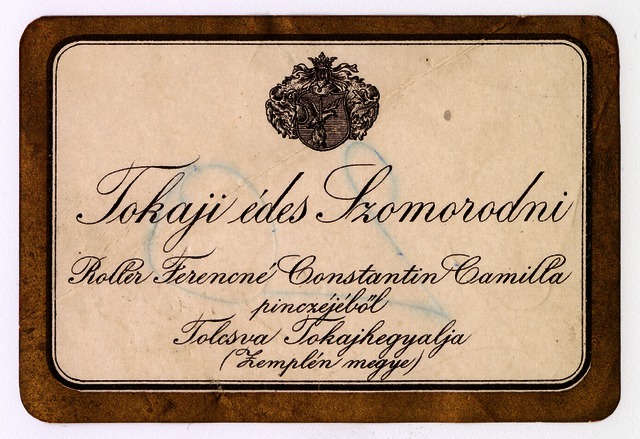 Tokaji édes Szomorodni
Roller Ferencné Constantin Camilla
pinczéjéből
Tolcsva Tokajhegyalja
(Zemplén megye)